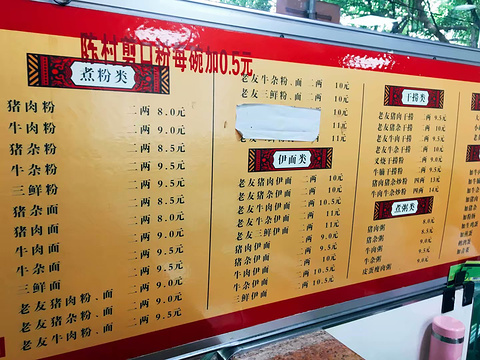 陈村剪口粉每碗加0.5元
煮粉类
猪肉粉 二两 8.0元
牛肉粉 二两 9.0元
猪杂粉 二两 8.5元
牛杂粉 二两 9.5元
三鲜粉 二两 9.5元
猪杂面 二两 8.5元
猪肉面 二两 8.0元
牛肉面 二两 9.0元
牛杂面 二两 9.5元
三鲜面 二两 9.5元
老友猪肉粉、面 二两 9.0元
老友猪杂粉、面 二两 9.5元
老友牛肉粉、面 二两 9.5元
老友牛杂粉、面 二两 10元
老友三鲜粉、面 二两 10元
10元
11元
11元
伊面类
老友猪肉伊面 二两 10元
老友猪杂伊面 二两 10元
老友牛肉伊面 二两 10.5元
老友牛杂伊面 二两 11元
老友三鲜伊面 二两 11元
猪肉伊面 二两 9.0元
猪杂伊面 二两 9.5元
牛肉伊面 二两 10元
牛杂伊面 二两 10.5元
三鲜伊面 二两 10.5元
干捞类
老友猪肉干捞 二两 9.5元
老友猪杂干捞 二两 10元
老友牛肉干捞 二两 10元
老友牛杂干捞 二两
叉烧干捞粉 二两 9.0元
牛腩干捞粉 二两 9.5元
猪肉猪杂炒粉 四两 13元
牛肉牛杂炒粉 四两 14元
煮粥类
猪肉粥 8.0元
猪杂粥 8.5元
牛肉粥 9.0元
牛杂粥 9.5元
皮蛋瘦肉粥